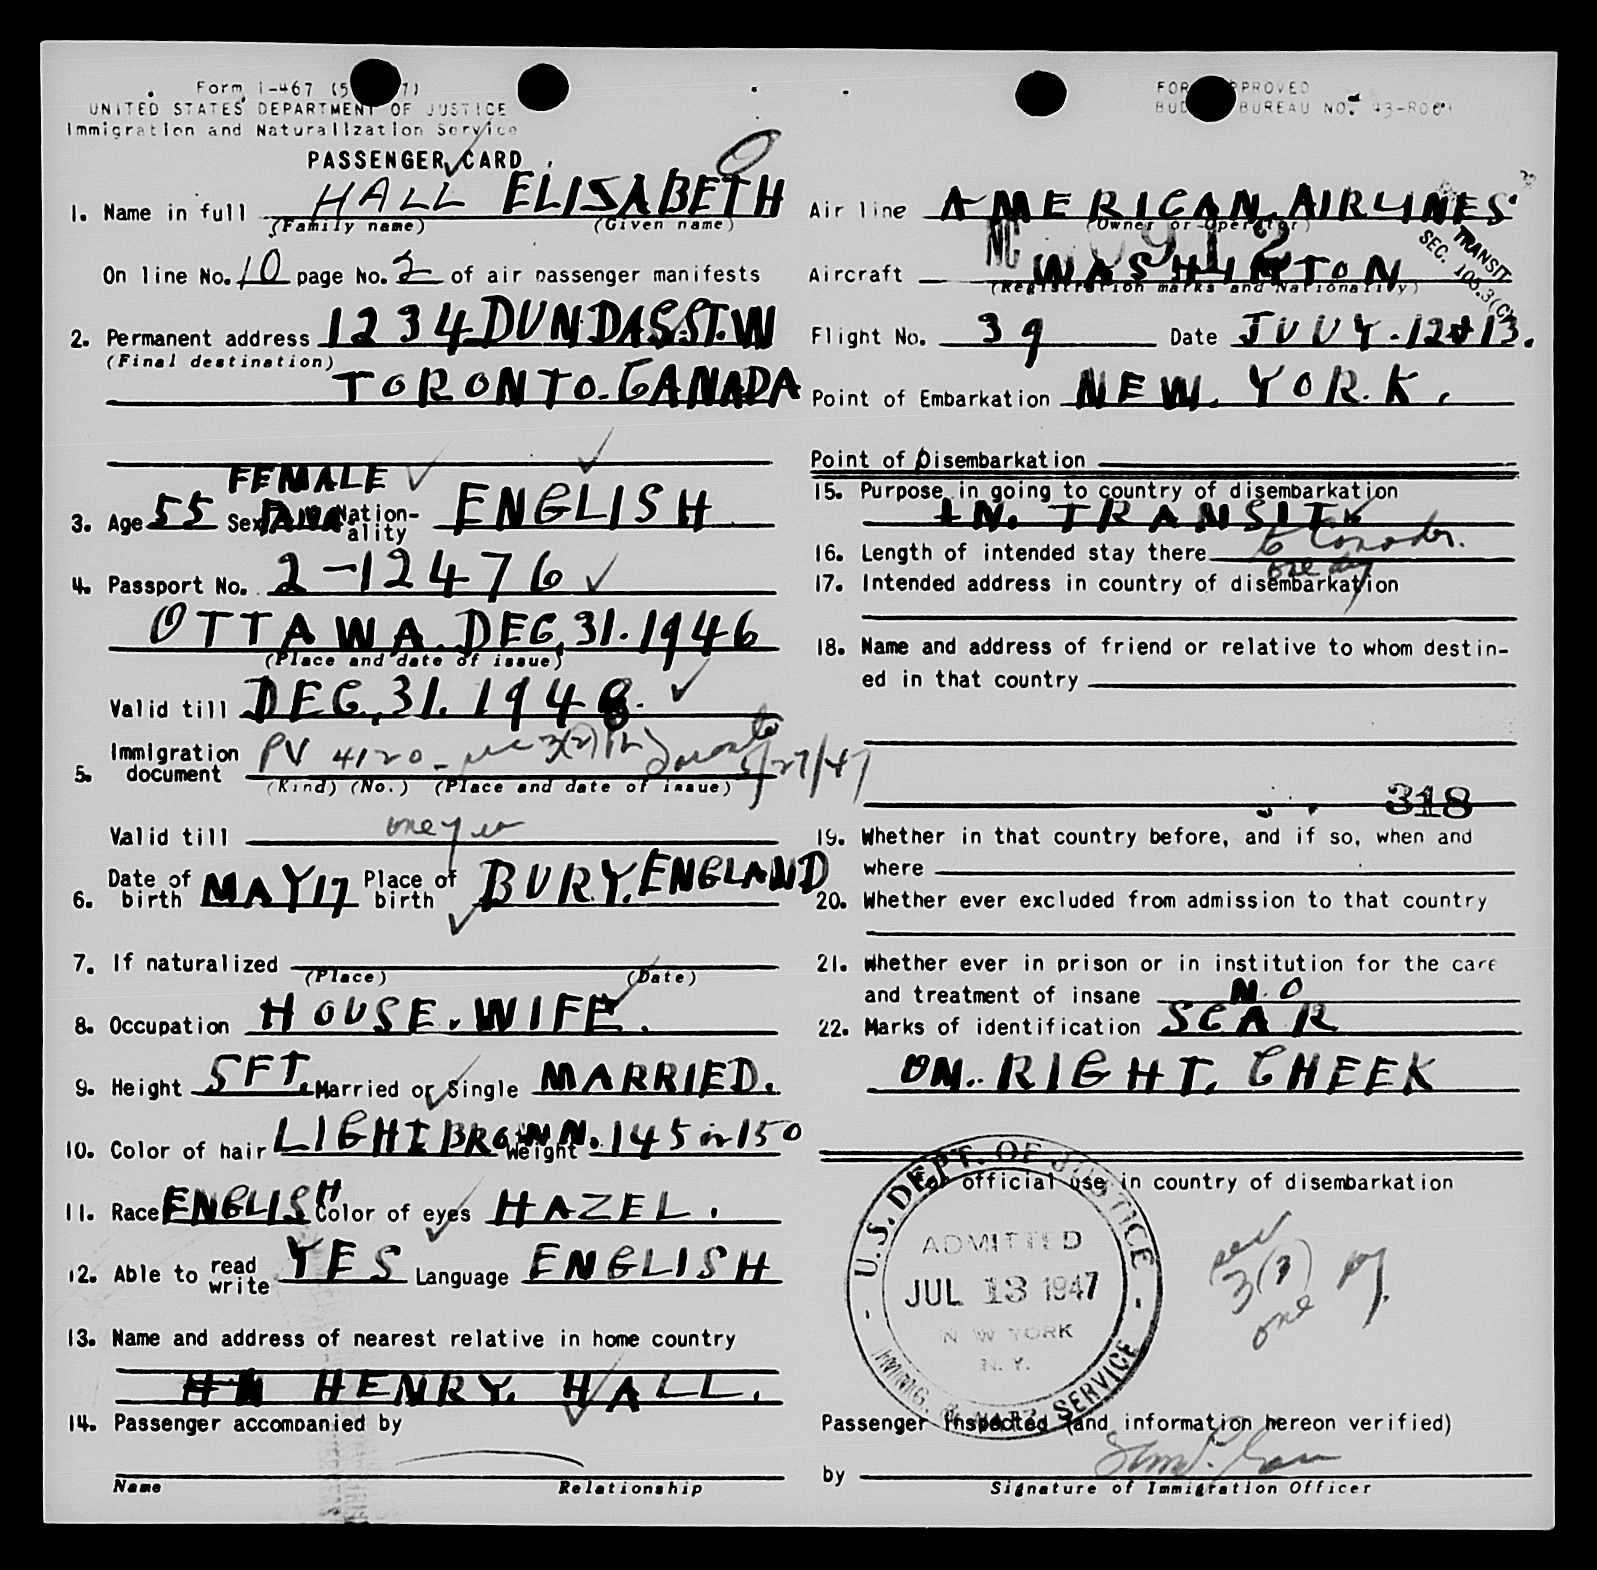 Form I-467
UNITED STATES DEPARTMENT OF JUSTICE
Immigration and Naturalization Service
PASSENGER CARD
1. Name in full HALL ELISABETH
(Family name) (Given name)
On line No. 10 page No. 2 of air passenger manifests
2. Permanent address 1234 DUNDAS.ST.W
(Final destination)
TORONTO.CANADA
FEMALE
3. Age 55 Sex Nation-ality ENGLISH
4. Passport No. 2-12476
OTTAWA. DEC. 31. 1946
(Place and date of issue)
Valid till DEC. 31. 1948.
5. Immigration document PV 4120 - 3(2) Toronto 5/27/47
(Kind) (No.) (Place and date of issue)
Valid till one year
6. Date of birth MAY 17 Place of birth BURY. ENGLAND
7. If naturalized
(Place) (Date)
8. Occupation HOUSE. WIFE.
9. Height 5FT. Married or Single MARRIED.
10. Color of hair LIGHT BROWN Weight 145 or 150
11. Race ENGLISH Color of eyes HAZEL.
12. Able to read write YES Language ENGLISH
13. Name and address of nearest relative in home country
HENRY. HALL.
14. Passenger accompanied by
Name Relationship
FORM APPROVED
BUDGET BUREAU NO.
Air line AMERICAN. AIRLINES
(Owner or Operator)
TRANSIT
SEC. 105.3(C)
NC 90912
Aircraft WASHINTON
(Registration marks and Nationality)
Flight No. 39 Date JUUY. 12 & 13.
Point of Embarkation NEW. YORK.
Point of Disembarkation
15. Purpose in going to country of disembarkation
IN. TRANSIT.
to Canada.
16. Length of intended stay there one day
17. Intended address in country of disembarkation
18. Name and address of friend or relative to whom destin-
ed in that country
318
19. Whether in that country before, and if so, when and
where
20. Whether ever excluded from admission to that country
21. Whether ever in prison or in institution for the care
and treatment of insane NO
22. Marks of identification SCAR
ON. RIGHT. CHEEK
official use in country of disembarkation
U.S. DEPT. OF JUSTICE
ADMITTED
JUL 13 1947
NEW YORK
N. Y.
IMMIG. & NATZ. SERVICE
sec
3(3)
one day
Passenger inspected (and information hereon verified)
by
Signature of Immigration Officer